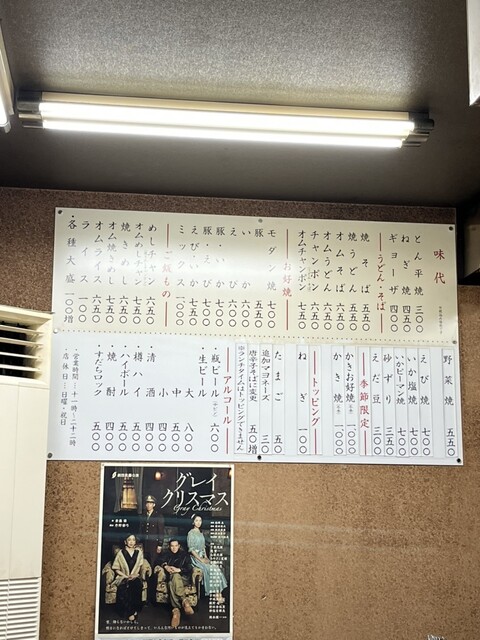 味代
とん平焼 三〇〇
ねぎ焼 四〇〇
ギョーザ 四五〇
うどん・そば
焼そば 五五〇
焼うどん 五五〇
オムそば 六五〇
オムうどん 六五〇
チャンポン 六五〇
オムチャンポン 七五〇
お好焼
モダン焼 七〇〇
豚 五五〇
いか 六〇〇
えび 六〇〇
豚・いか 七〇〇
えび・いか
ミックス
ご飯もの
めしチャン 六五〇
オムめしチャン 七五〇
焼きめし
オム焼きめし
オムライス 六五〇
ライス 一〇〇
・各種大盛 一〇〇増
野菜焼 五五〇
えび焼 七〇〇
いか塩焼 七〇〇
いかピーマン焼 七〇〇
砂ずり 四五〇
えだ豆 三〇〇
季節限定
かきお好焼 一、〇〇〇
かき焼 一、〇〇〇
トッピング
ねぎ 一〇〇
たまご 五〇
追加マヨネーズ 三〇
唐辛子そばに変更 五〇増
※ランチタイムはトッピングできません
アルコール
・瓶ビール 六〇〇
・生ビール 大 八〇〇
中 五五〇
小 四〇〇
・清酒 四五〇
・樽ハイ 五〇〇
・ハイボール 五〇〇
・焼酎 四〇〇
・すだちロック 五〇〇
・営業時間…十一時〜二十二時
・店休日…日曜・祝日
グレイクリスマス
Gray Christmas